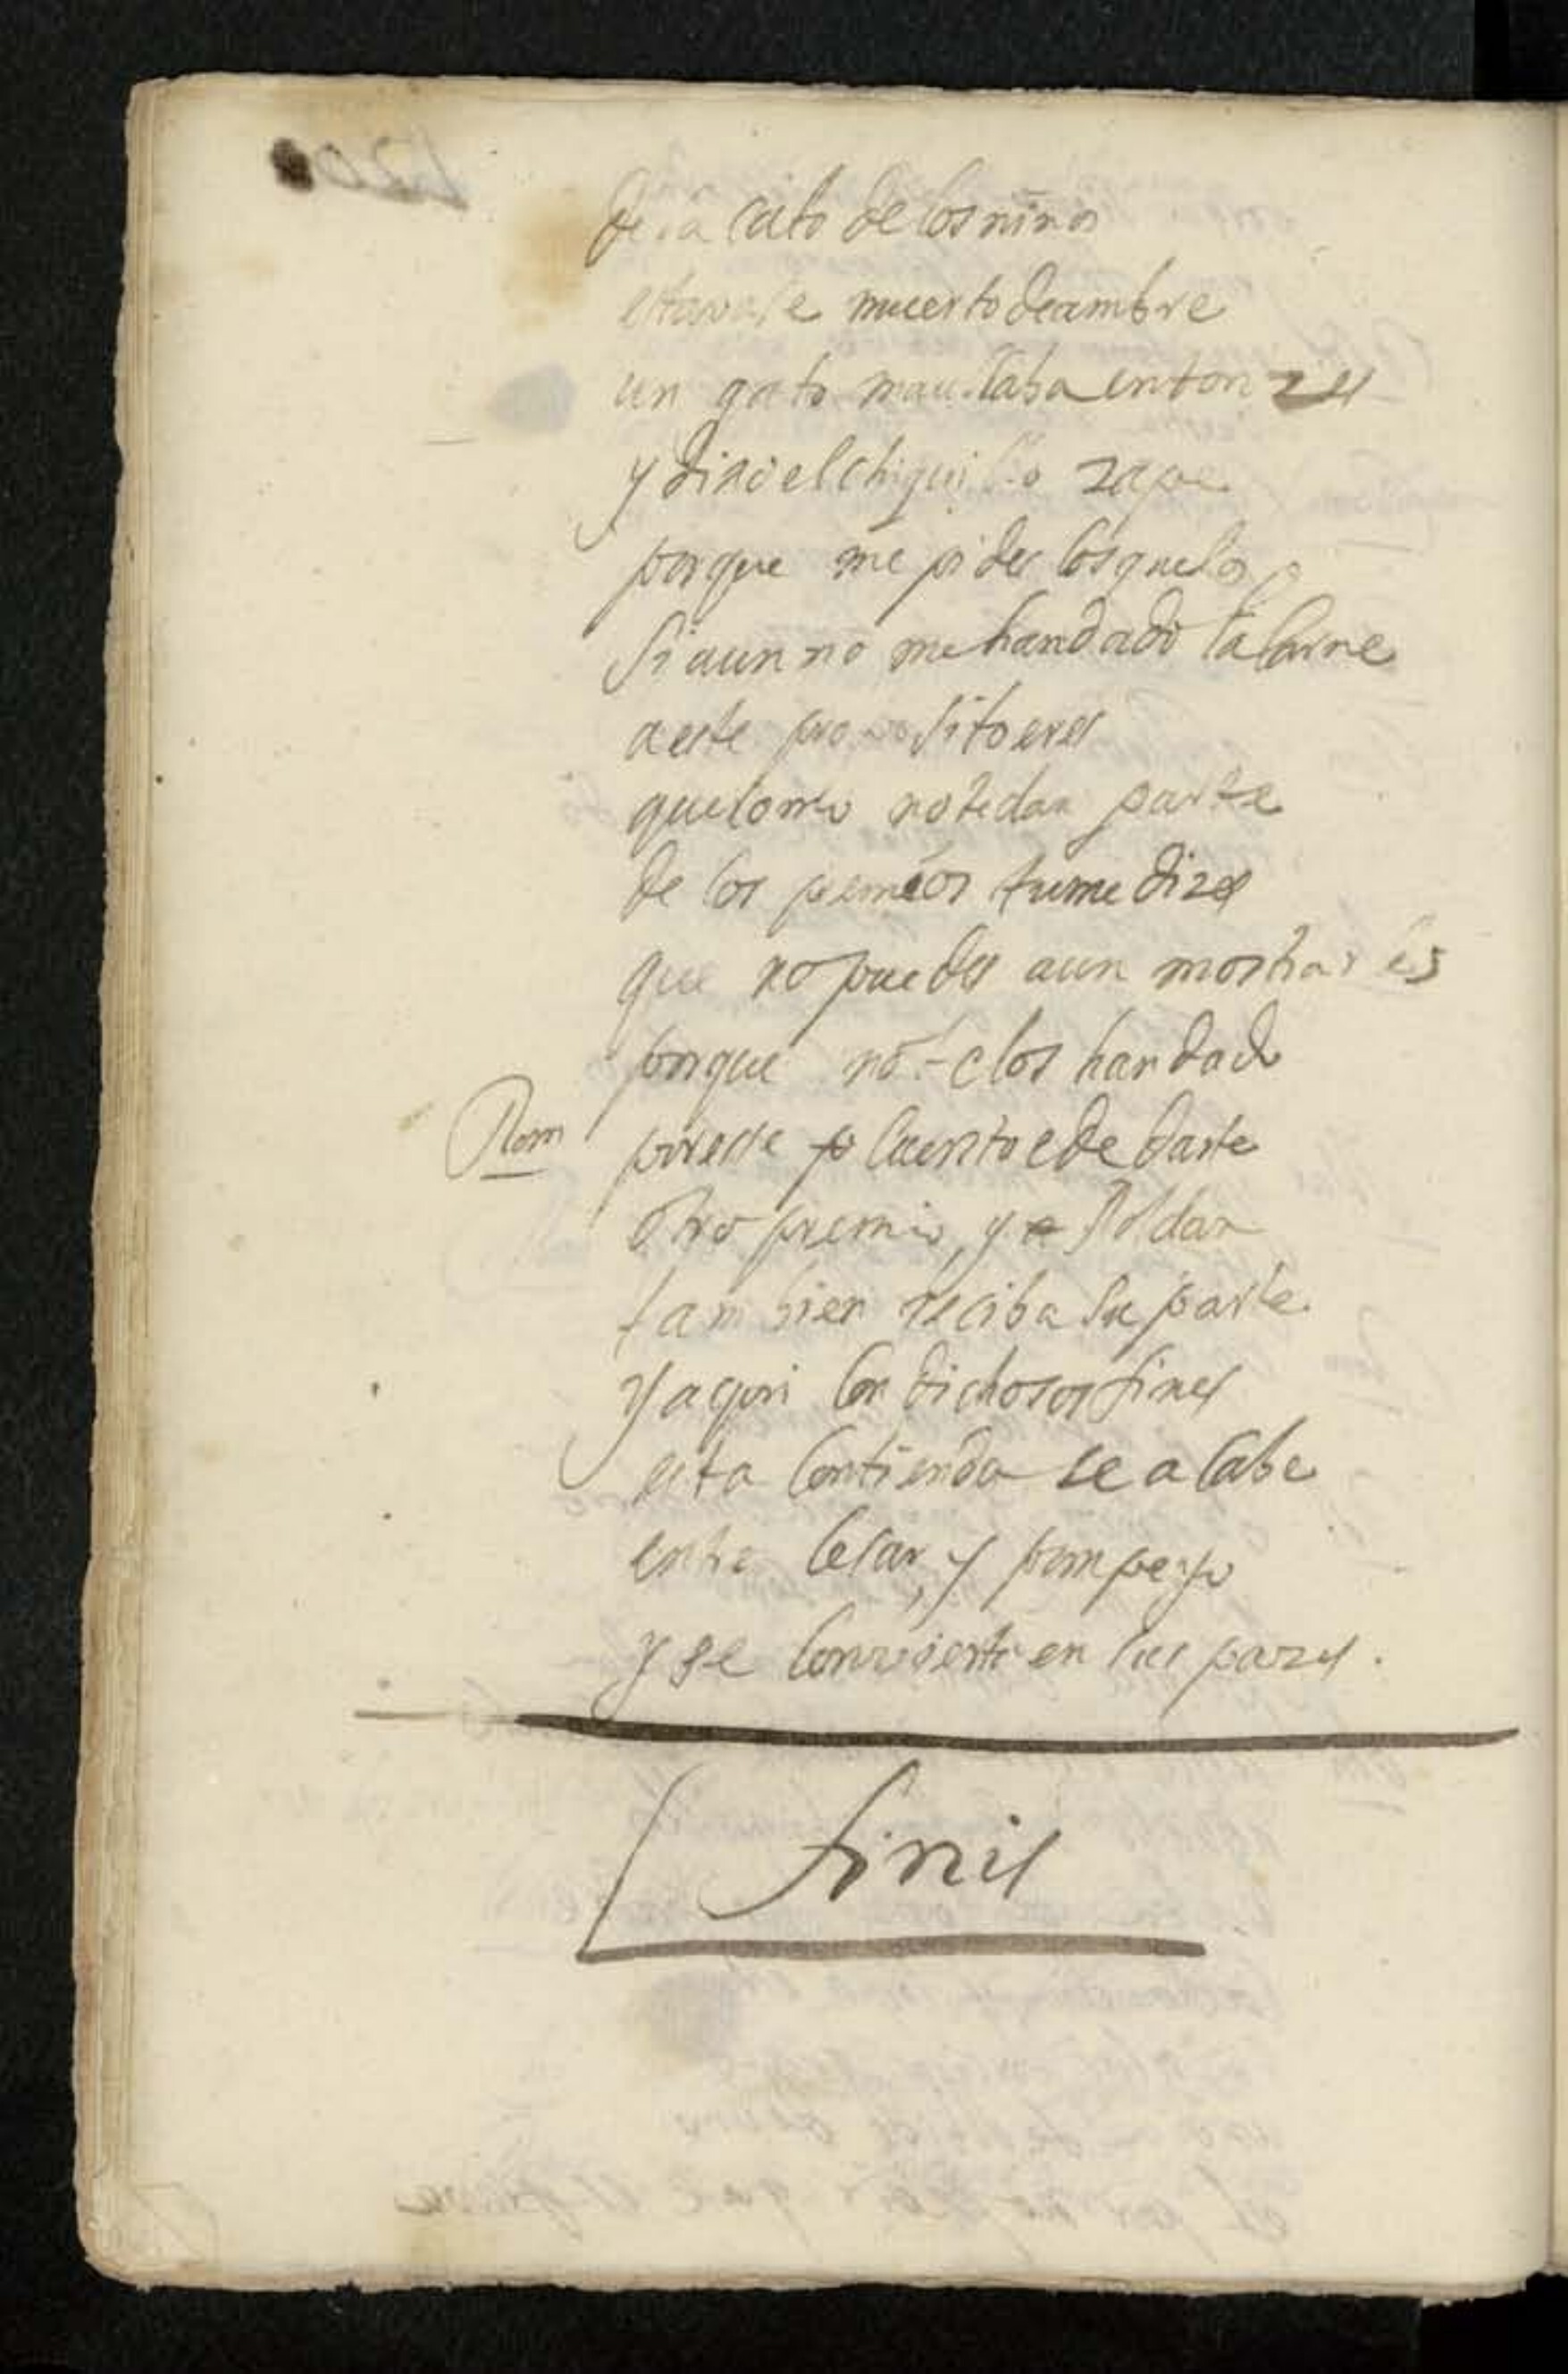 de la cato de los niños
estavase muerto de ambre
un gato maullaba entonzes
y dixo el chiquillo zape
porque me pides los guesos
si aun no me han dado la carne
a este proposito eres
que como no te dan parte
de los premios tu me dizes
que no puedes aun mostrar
porque no te los han dado
Pom por este cuento e de darte
otro premio, y Roldan
tambien reciba su parte
y aqui con dichosos fines
esta contienda se acabe
entre Cesar, y pompeyo
y se convierte en sus pazes.
finis